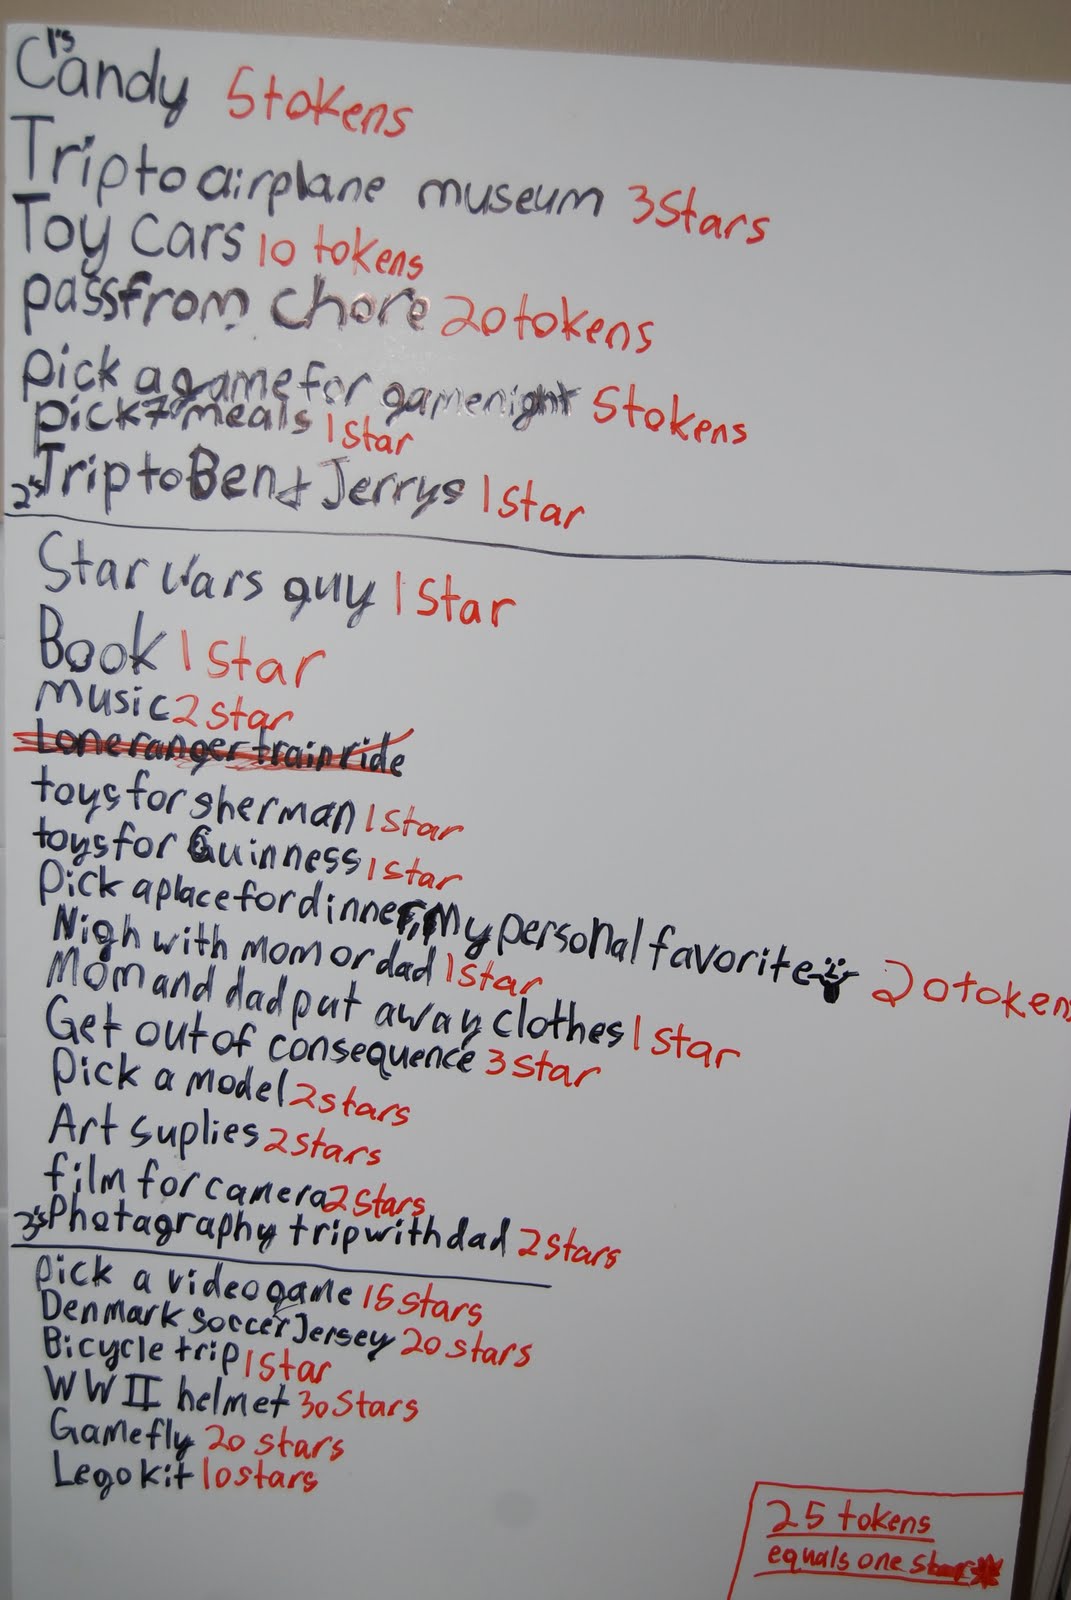 1's
Candy 5 tokens
Trip to airplane museum 3 Stars
Toy Cars 10 tokens
pass from chore 20 tokens
pick a game for game night 5 tokens
pick 7 meals 1 Star
2's Trip to Ben & Jerrys 1 Star
Star Wars guy 1 Star
Book 1 Star
music 2 star
Lone ranger train ride
toys for sherman 1 Star
toys for Guinness 1 Star
Pick a place for dinner, My personal favorite 20 token
Nigh with mom or dad 1 Star
Mom and dad put away clothes 1 Star
Get out of consequence 3 Star
Pick a model 2 stars
Art suplies 2 stars
film for camera 2 Stars
3's Photagraphy trip with dad 2 Stars
pick a video game 15 stars
Denmark soccer Jersey 20 stars
Bicycle trip 1 Star
WWII helmet 30 Stars
Gamefly 20 stars
Lego kit 10 stars
25 tokens
equals one star